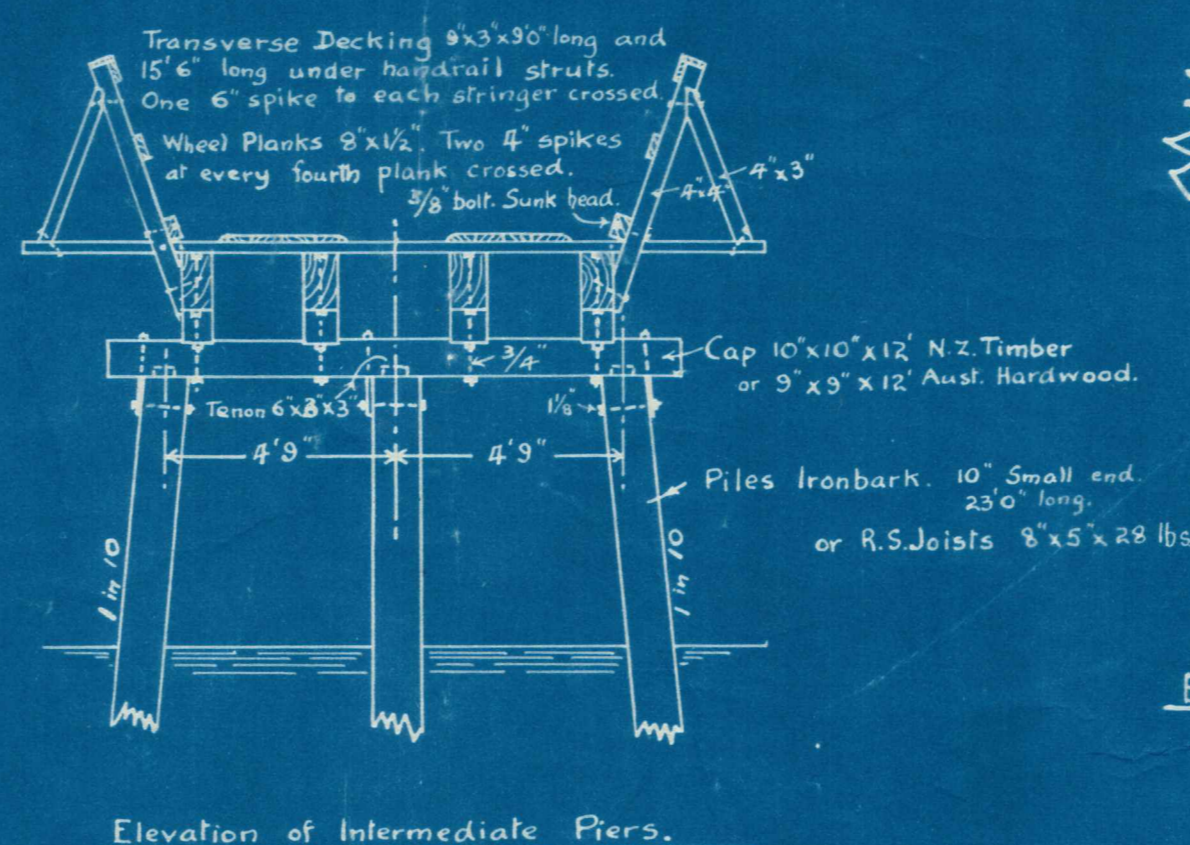 Transverse Decking 9"x3"x9'0" long and
15'6" long under handrail struts.
One 6" spike to each stringer crossed.
Wheel Planks 8"x1½". Two 4" spikes
at every fourth plank crossed.
3/8" bolt. Sunk head.
4"x4"
4"x3"
3/4"
Cap 10"x10"x12' N.Z. Timber
or 9"x9"x12' Aust. Hardwood.
Tenon 6"x3"x3"
1⅛"
4'9"
4'9"
Piles Ironbark. 10" Small end.
23'0" long.
or R.S. Joists 8"x5"x28 lbs
1 in 10
1 in 10
Elevation of Intermediate Piers.